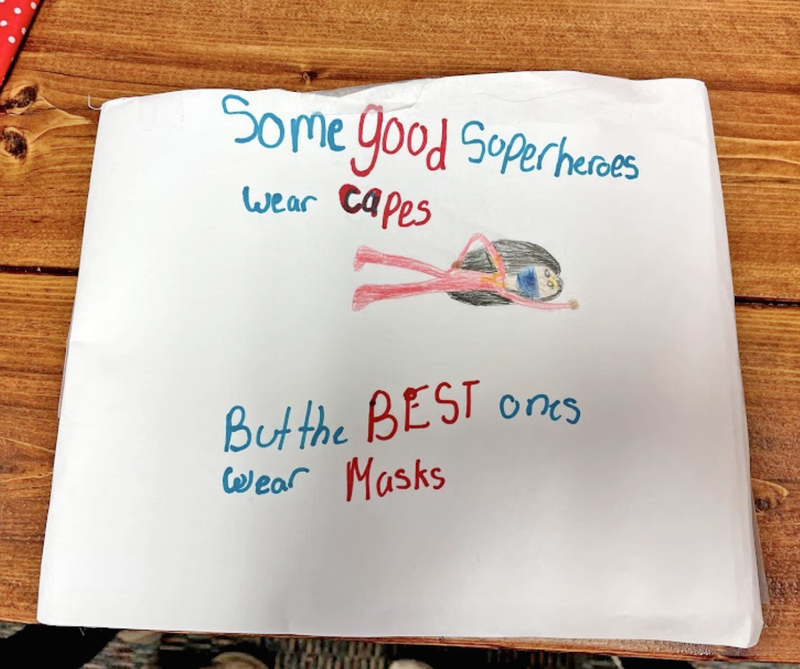 Some good Superheroes
wear capes
But the BEST ones
wear Masks